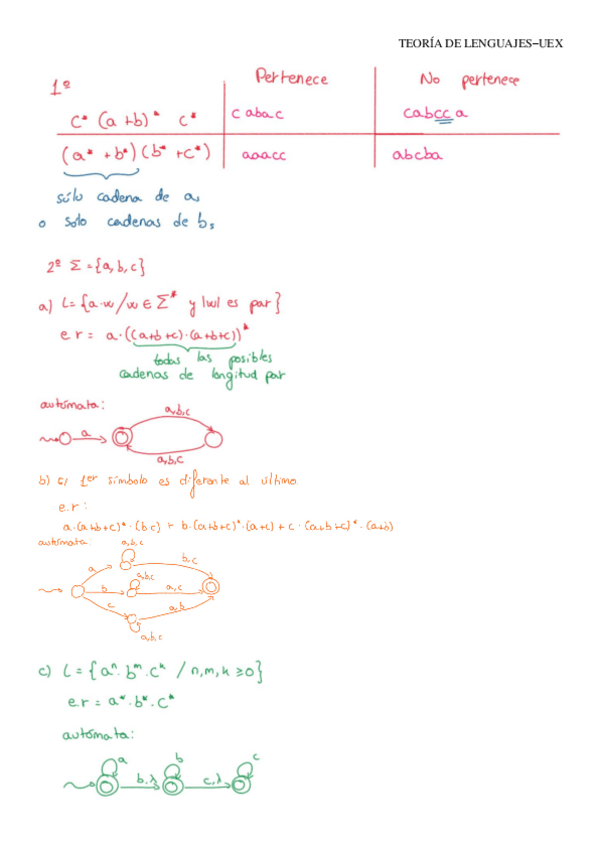 TEORÍA DE LENGUAJES–UEX
1º Pertenece No pertenece
c* (a+b)* c* c abac cabcc a
(a* + b*)(b* + c*) aaacc abcba
sólo cadena de as
o solo cadenas de bs
2º Σ = {a, b, c}
a) L = {a·w / w ∈ Σ* y |w| es par}
e r = a·((a+b+c)·(a+b+c))*
todas las posibles
cadenas de longitud par
autómata:
a
a,b,c
a,b,c
b) c/ 1er símbolo es diferente al último
e.r:
a·(a+b+c)*·(b c) + b·(a+b+c)*·(a+c) + c·(a+b+c)*·(a+b)
autómata:
a,b,c
a b,c
a,b,c
b a,c
c a,b
a,b,c
c) L = {aⁿ·bᵐ·cᵏ / n,m,k ≥0}
e.r = a*·b*·c*
autómata:
a b c
b,λ c,λ